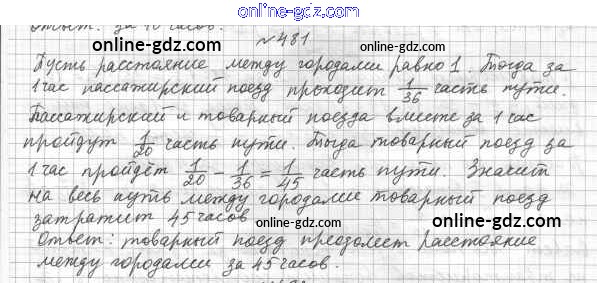 online-gdz.com
Ответ: за 40 часов.
№ 481
online-gdz.com online-gdz.com
Пусть расстояние между городами равно 1. Тогда за
1 час пассажирский поезд проходит 1/36 часть пути.
Пассажирский и товарный поезда вместе за 1 час
пройдут 1/20 часть пути. Тогда товарный поезд за
1 час пройдёт 1/20 - 1/36 = 1/45 часть пути. Значит
на весь путь между городами товарный поезд
затратит 45 часов
online-gdz.com online-gdz.com
Ответ: товарный поезд преодолеет расстояние
между городами за 45 часов.
online-gdz.com